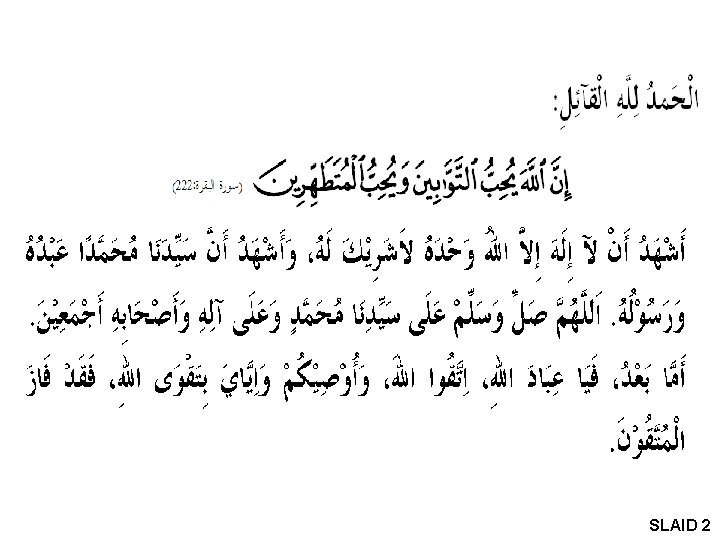 الْحَمْدُ لِلَّهِ الْقَآئِلِ:
إِنَّ ٱللَّهَ يُحِبُّ ٱلتَّوَّٰبِينَ وَيُحِبُّ ٱلْمُتَطَهِّرِينَ (سورة البقرة:222)
أَشْهَدُ أَنْ لَآ إِلَهَ إِلَّا اللهُ وَحْدَهُ لَاشَرِيْكَ لَهُ، وَأَشْهَدُ أَنَّ سَيِّدَنَا مُحَمَّدًا عَبْدُهُ
وَرَسُوْلُهُ. اَللَّهُمَّ صَلِّ وَسَلِّمْ عَلَى سَيِّدِنَا مُحَمَّدٍ وَعَلَى آلِهِ وَأَصْحَابِهِ أَجْمَعِيْنَ.
أَمَّا بَعْدُ، فَيَا عِبَادَ اللهِ، اِتَّقُوا اللهَ، وَأُوْصِيْكُمْ وَإِيَّايَ بِتَقْوَى اللهِ، فَقَدْ فَازَ
الْمُتَّقُوْنَ.
SLAID 2